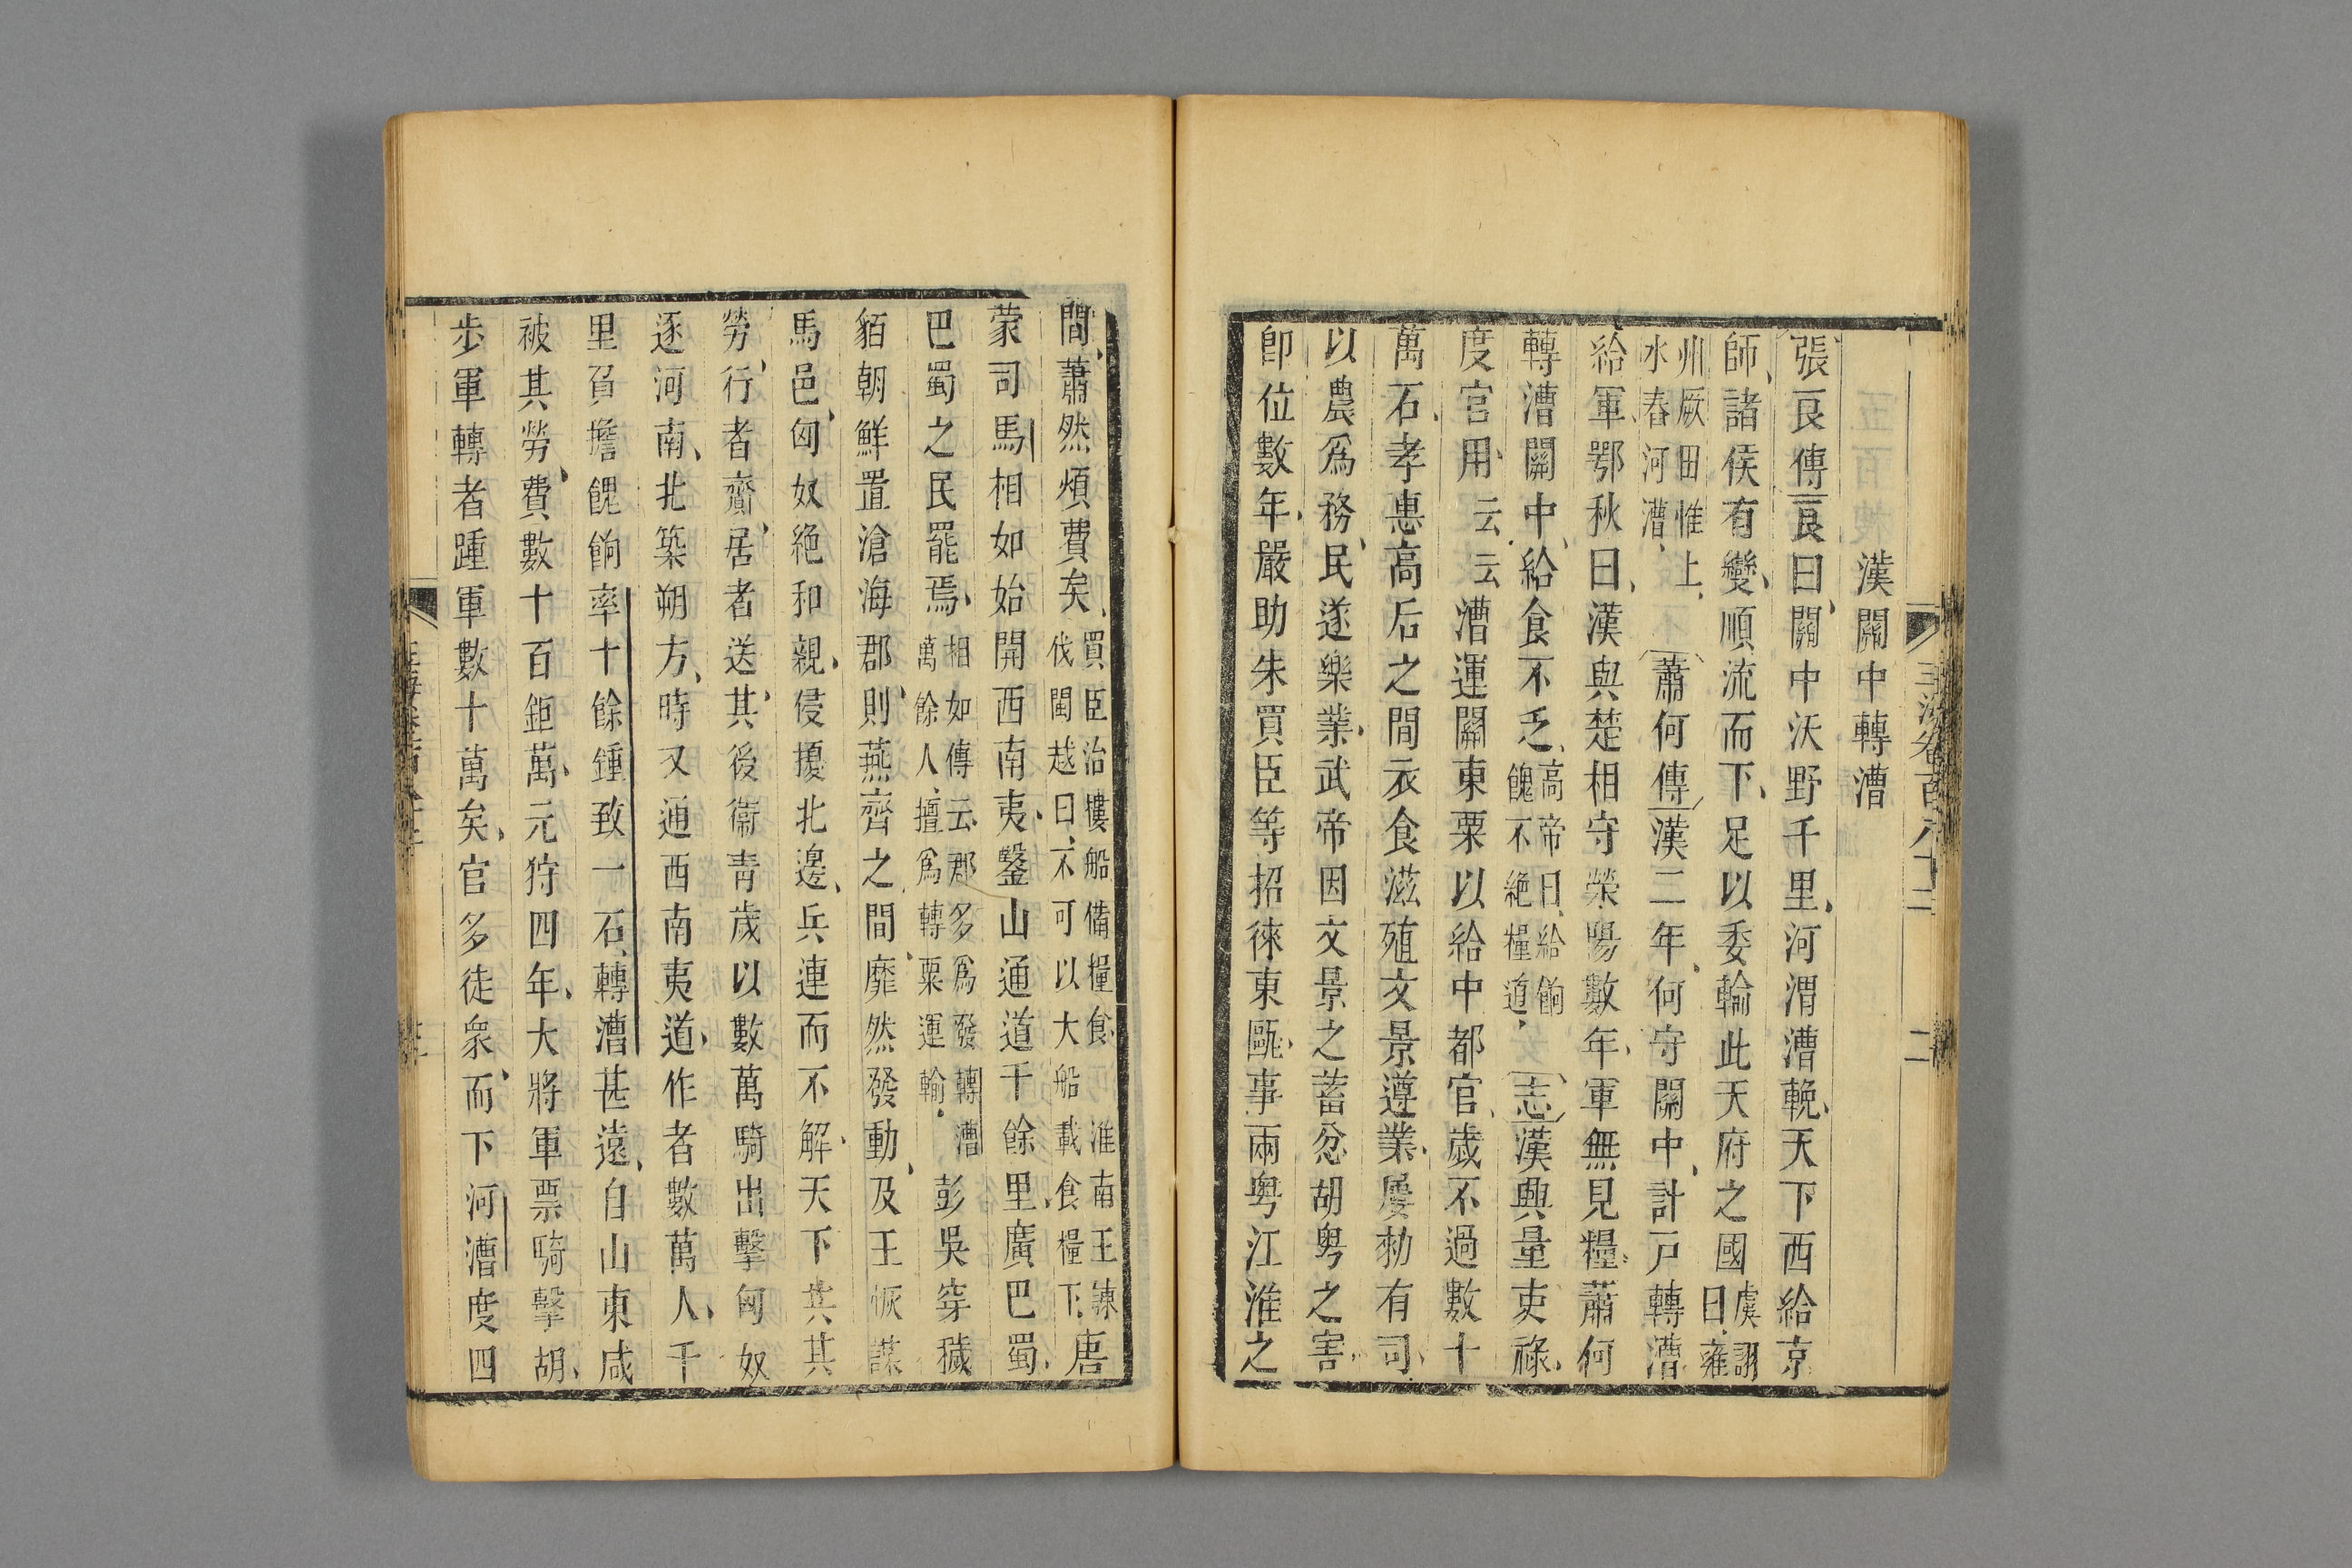 漢關中轉漕
張良傳良曰關中沃野千里河渭漕輓天下西給京
師諸侯有變順流而下足以委輸此天府之國虞詡曰雍
州厥田惟上水舂河漕蕭何傳漢二年何守關中計戸轉漕
給軍鄂秋曰漢與楚相守滎陽數年軍無見糧蕭何
轉漕關中給食不乏高帝曰給餉餽不絶糧道志漢興量吏祿
度官用云云漕運關東粟以給中都官歲不過數十
萬石孝惠高后之間衣食滋殖文景遵業屢勑有司
以農爲務民遂樂業武帝因文景之蓄忿胡粤之害
卽位數年嚴助朱買臣等招徠東甌事兩粤江淮之
玉海卷百八十二
二
間蕭然煩費矣買臣治樓船備糧食淮南王諫伐閩越曰不可以大船載食糧下唐
蒙司馬相如始開西南夷鑿山通道千餘里廣巴蜀
巴蜀之民罷焉相如傳云郡多爲發轉漕萬餘人擅爲轉粟運輸彭吳穿穢
貊朝鮮置滄海郡則燕齊之間靡然發動及王恢謀
馬邑匈奴絶和親侵擾北邊兵連而不解天下共其
勞行者齎居者送其後衞青歲以數萬騎出擊匈奴
逐河南北築朔方時又通西南夷道作者數萬人千
里負擔餽餉率十餘鍾致一石轉漕甚遠自山東咸
被其勞費數十百鉅萬元狩四年大將軍票騎擊胡
步軍轉者踵軍數十萬矣官多徒衆而下河漕度四